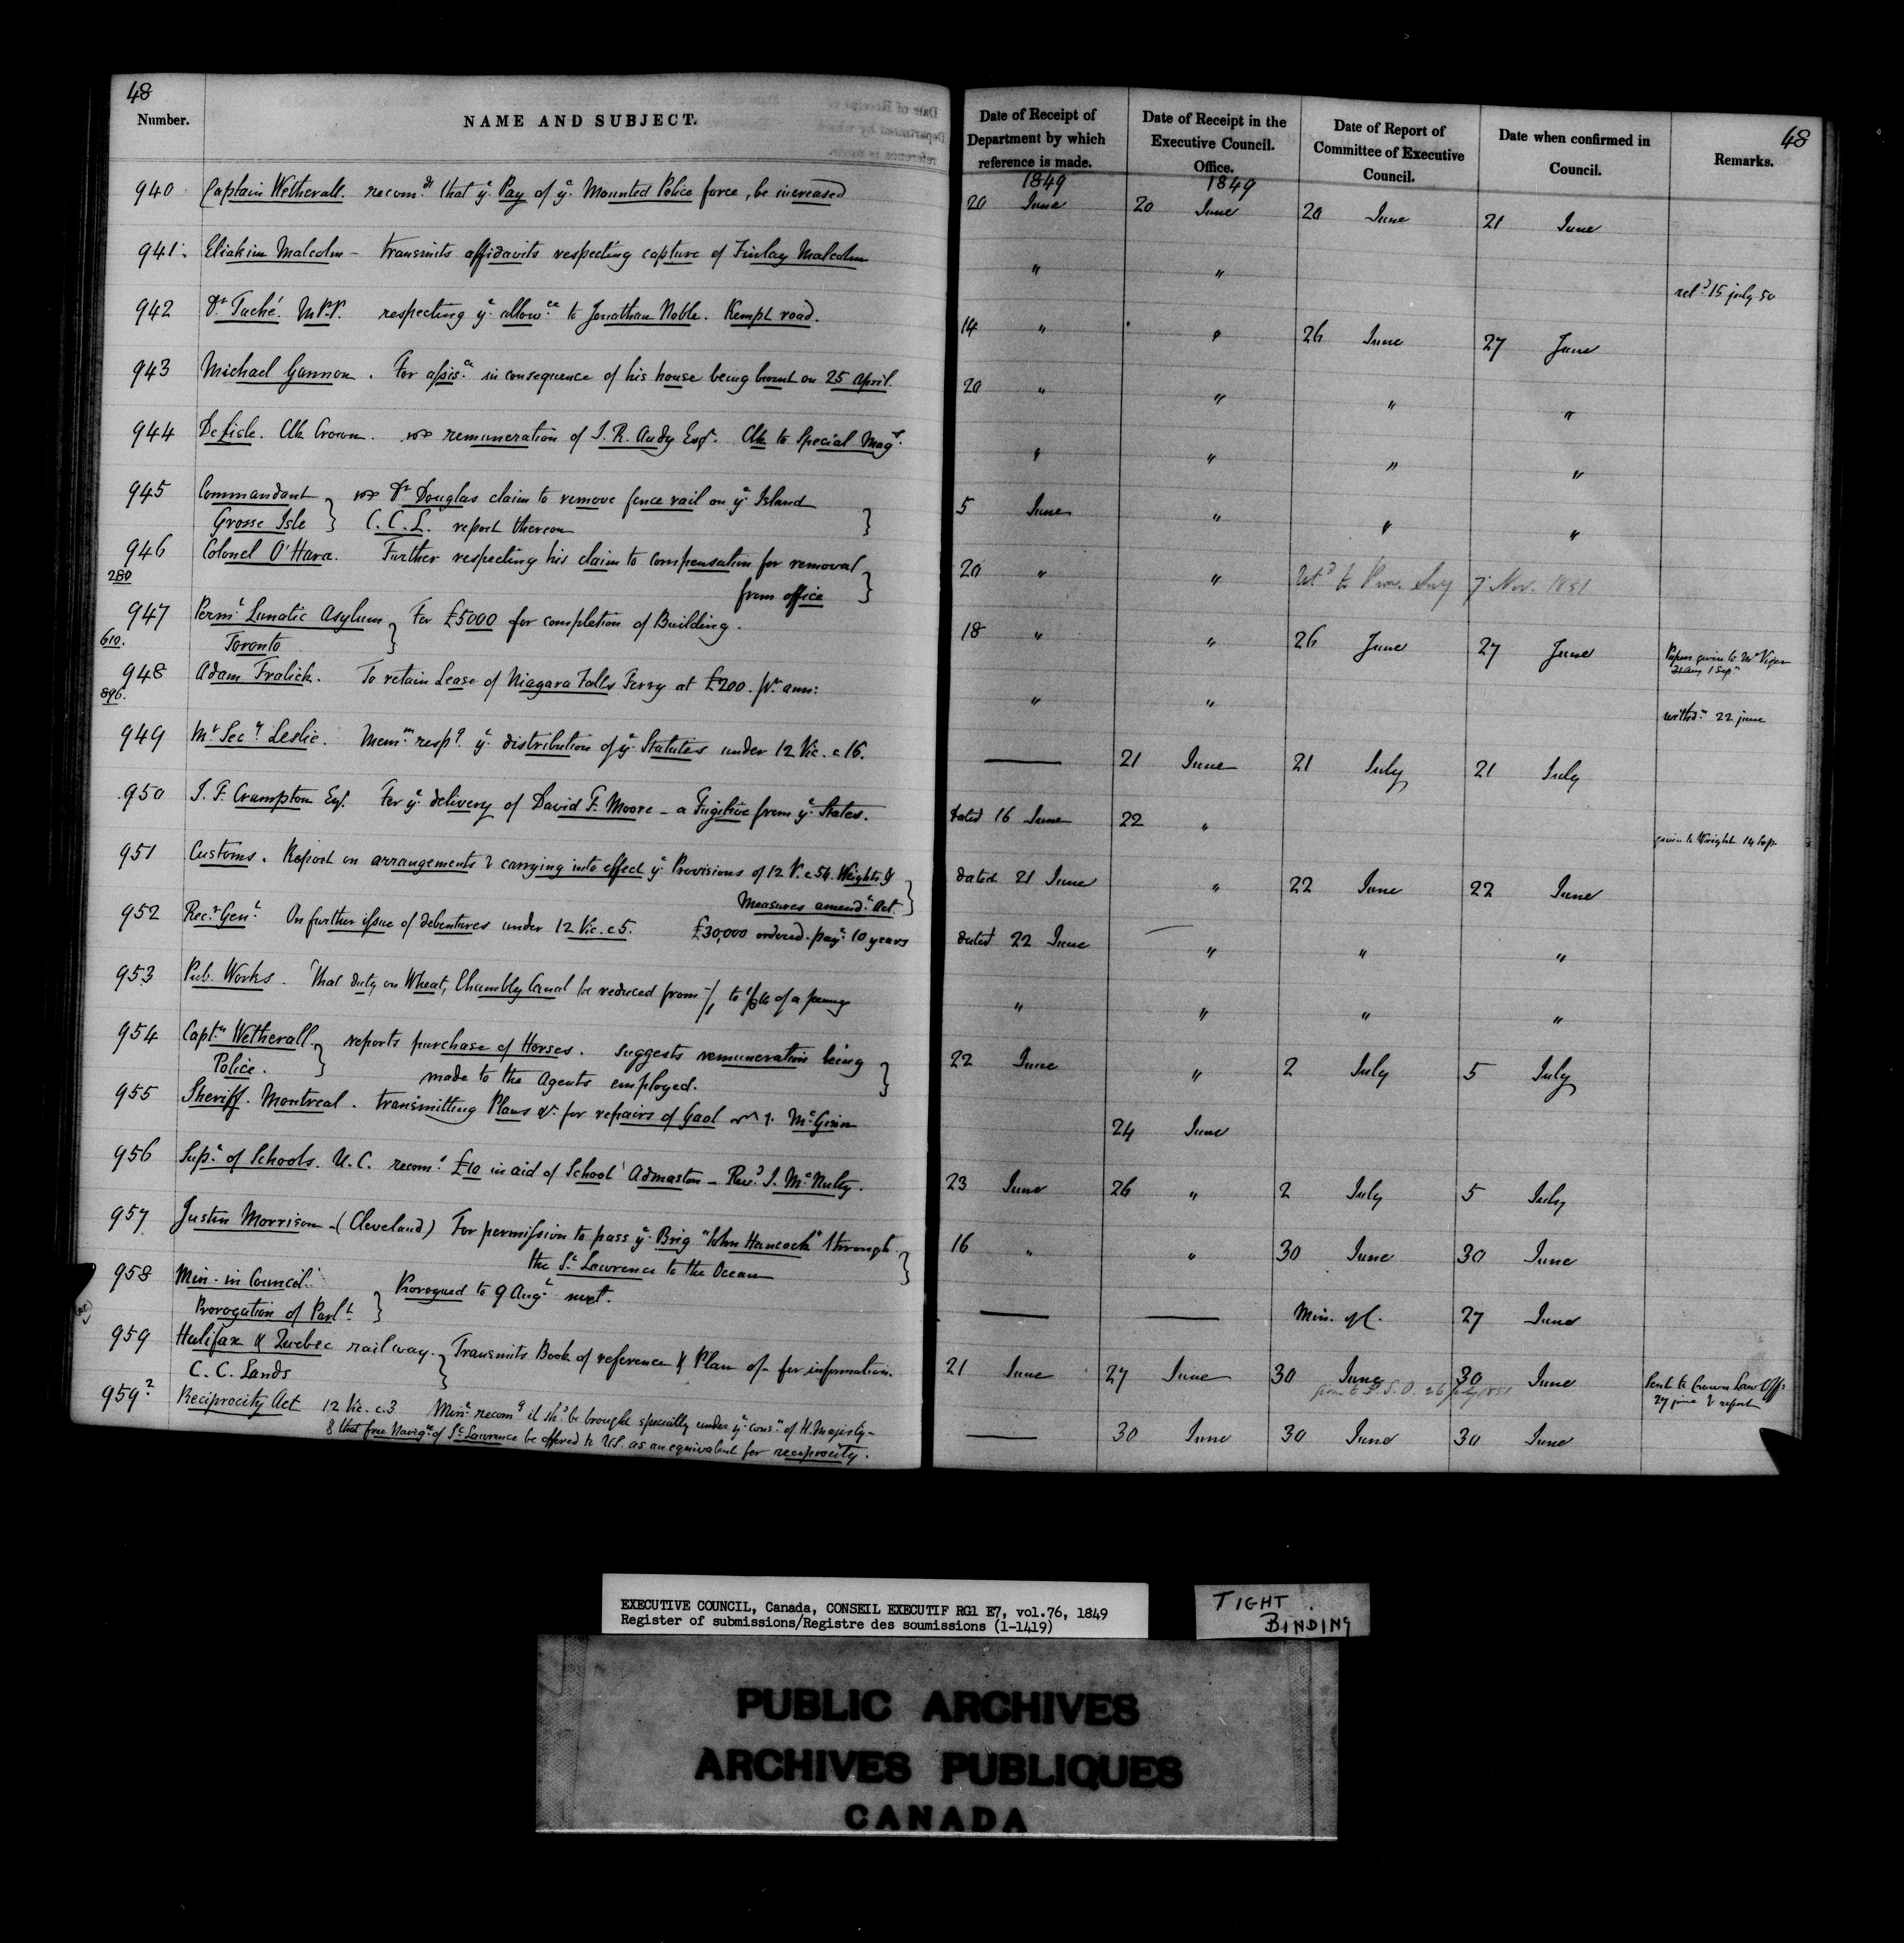 48
Number.
NAME AND SUBJECT.
940 Captain Wetherall. recom.ds that ye Pay of ye Mounted Police force, be increased
941. Eliakim Malcolm - transmits affidavits respecting capture of Finlay Malcolm
942 Dr Taché. M.P.P. respecting ye allow.ce to Jonathan Noble. Kempt road.
943 Michael Gannon. For assis.ce in consequence of his house being burnt on 25 April.
944 DeLisle. Clk Crown. remuneration of J. R. Audy Esqr. Clk to Special Magr.
945 Commandant } Dr Douglas claim to remove fence rail on ye Island
Grosse Isle } C.C.L. report thereon }
946 Colonel O'Hara. Further respecting his claim to compensation for removal
280 from office }
947 Perm.t Lunatic Asylum } For £5000 for completion of Building.
610. Toronto
948 Adam Fralick. To retain Lease of Niagara Falls Ferry at £200. pr. ann:
896.
949 Mr Secy Leslie. Mem.m respg ye distribution of ye Statutes under 12 Vic. c 16.
950 J. F. Crampton Esqr. For ye delivery of David F. Moore - a Fugitive from ye States.
951 Customs. Report on arrangements & carrying into effect ye Provisions of 12 V. c 54. Weights &
Measures amend.t Act. }
952 Rec.r Gen.l On further issue of debentures under 12 Vic. c 5. £30,000 ordered. pay.e 10 years
953 Pub. Works. That duty on Wheat, Chambly Canal be reduced from to of a penny
954 Capt.n Wetherall. } reports purchase of Horses. suggests remuneration being
Police. } made to the Agents employed. }
955 Sheriff. Montreal. transmitting Plans &c. for repairs of Gaol McGinn
956 Sup.t of Schools. U.C. recom.s £10 in aid of School Admaston - Rev.d J. McNulty.
957 Justin Morrison - (Cleveland) For permission to pass ye Brig "John Hancock" through
the St. Lawrence to the Ocean }
958 Min. in Council. } Prorogued to 9 Aug.t next.
Prorogation of Parl.t
959 Halifax & Quebec railway. } Transmits Book of reference & Plan of - for information.
C. C. Lands
959 2 Reciprocity Act 12 Vic. c.3 Min.e recom.g it sh.d be brought specially under ye cons.n of H. Majesty -
& that free Navig.n of St. Lawrence be offered to U.S. as an equivalent for reciprocity.
48
Date of Receipt of Department by which reference is made.
Date of Receipt in the Executive Council. Office.
Date of Report of Committee of Executive Council.
Date when confirmed in Council.
Remarks.
1849 1849
20 June 20 June 20 June 21 June
" " ret.d 15 july 50
14 " " 26 June 27 June
20 " " " "
" " " "
5 June " " "
20 " " 7 Nov. 1851
18 " " 26 June 27 June Papers given to Mr Viger
" " withd.n 22 june
— 21 June 21 July 21 July
dated 16 June 22 " given to Wright 14 Sep
dated 21 June " 22 June 22 June
dated 22 June " " "
" " " "
22 June " 2 July 5 July
24 June
23 June 26 " 2 July 5 July
16 " " 30 June 30 June
— — Min. of C. 27 June
21 June 27 June 30 June 30 June Sent to Crown Law Off.
27 june & report
— 30 June 30 June 30 June
EXECUTIVE COUNCIL, Canada, CONSEIL EXECUTIF RG1 E7, vol.76, 1849
Register of submissions/Registre des soumissions (1-1419)
TIGHT
BINDING
PUBLIC ARCHIVES
ARCHIVES PUBLIQUES
CANADA